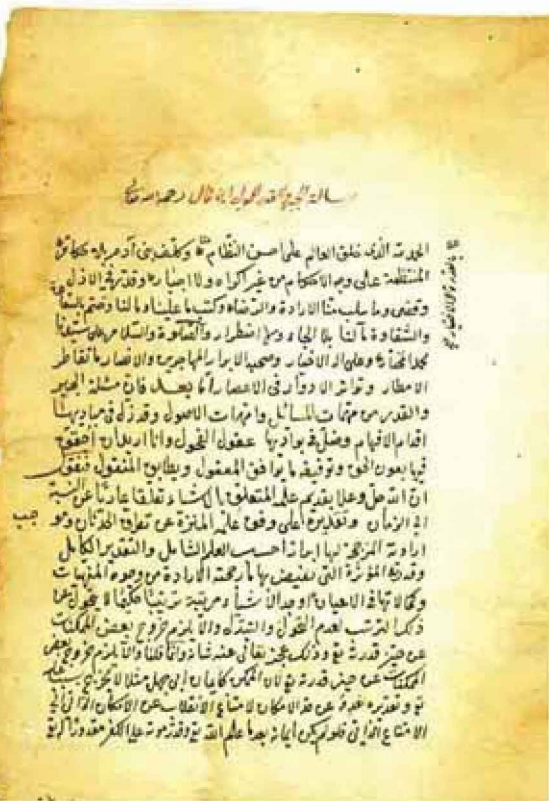 رسالة الجبر والقدر لمولى ابن كمال رحمه الله تعالى
الحمد لله الذى خلق العالم على احسن النظام وكلف بنى آدم
المنتظمة على وجه الاحكام من غير اكراه ولا اجبار وقدر فى الازل
وقضى وما سلب عنا الارادة والرضاء وكتب ما علينا وما لنا وختم بالسعادة
والشقاوة مآلنا بلا الجاء ولا اضطرار والصلوة والسلام على سيدنا
محمد المختار وعلى آله الاخيار وصحبه الابرار المهاجرين والانصار ما تقاطر
الامطار وتواتر الادوار فى الاعصار اما بعد فان مسئلة الجبر
والقدر من مهمات المسائل وامهات الاصول وقد زل فى مباديها
اقدام الافهام وضل فى بواديها عقول الفحول وانا اريد ان احقق
فيها بعون الحق وتوفيقه ما يوافق المعقول ويطابق المنقول فنقول
ان الله جل وعلا بقديم علمه المتعلق بالاشياء تعلقا عاريا عن النسبة
الى الزمان وتقديره الاعلى وقوع علمه المنزه عن تطرق الحدثان وهو
ارادته المرجحة لها ايجادا حسب العلم الشامل والتقدير الكامل
وقدرته المؤثرة التى يفيض بها ما رجحته الارادة من وجوه الممكنات
وكمالاتها فى الاعيان اوجد الاشياء ومرتبة ترتيبا حكيما لا يتحول عن
ذلك الترتب لعدم التحول والتبدل والا يلزم خروج بعض الممكنات
عن حيز قدرة تع وذلك عجز تعالى عنه شانه وانما قلنا والا يلزم خروج بعض
الممكنات عن حيز قدرة تع لان الممكن كايمان ابى جهل مثلا لا يخرج بسبب علمه
تع وتقديره عدمه عن حد الامكان لامتناع الانقلاب عن الامكان الذاتى الى
الامتناع الذاتى فلو لم يكن ايمانه بعد ما علم الله تع وقدر موته على الكفر مقدورا له تع